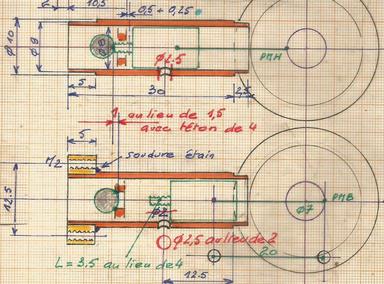 10,5
0,5 + 0,25
Φ10
Φ9
Φ8
Φ2.5
PMH
5
30
2,5
1 au lieu de 1,5
avec téton de 4
5
M2
soudure étain
12.5
Φ2
PMB
Φ7
Φ2,5 au lieu de 2
L = 3,5 au lieu de 4
20
12.5